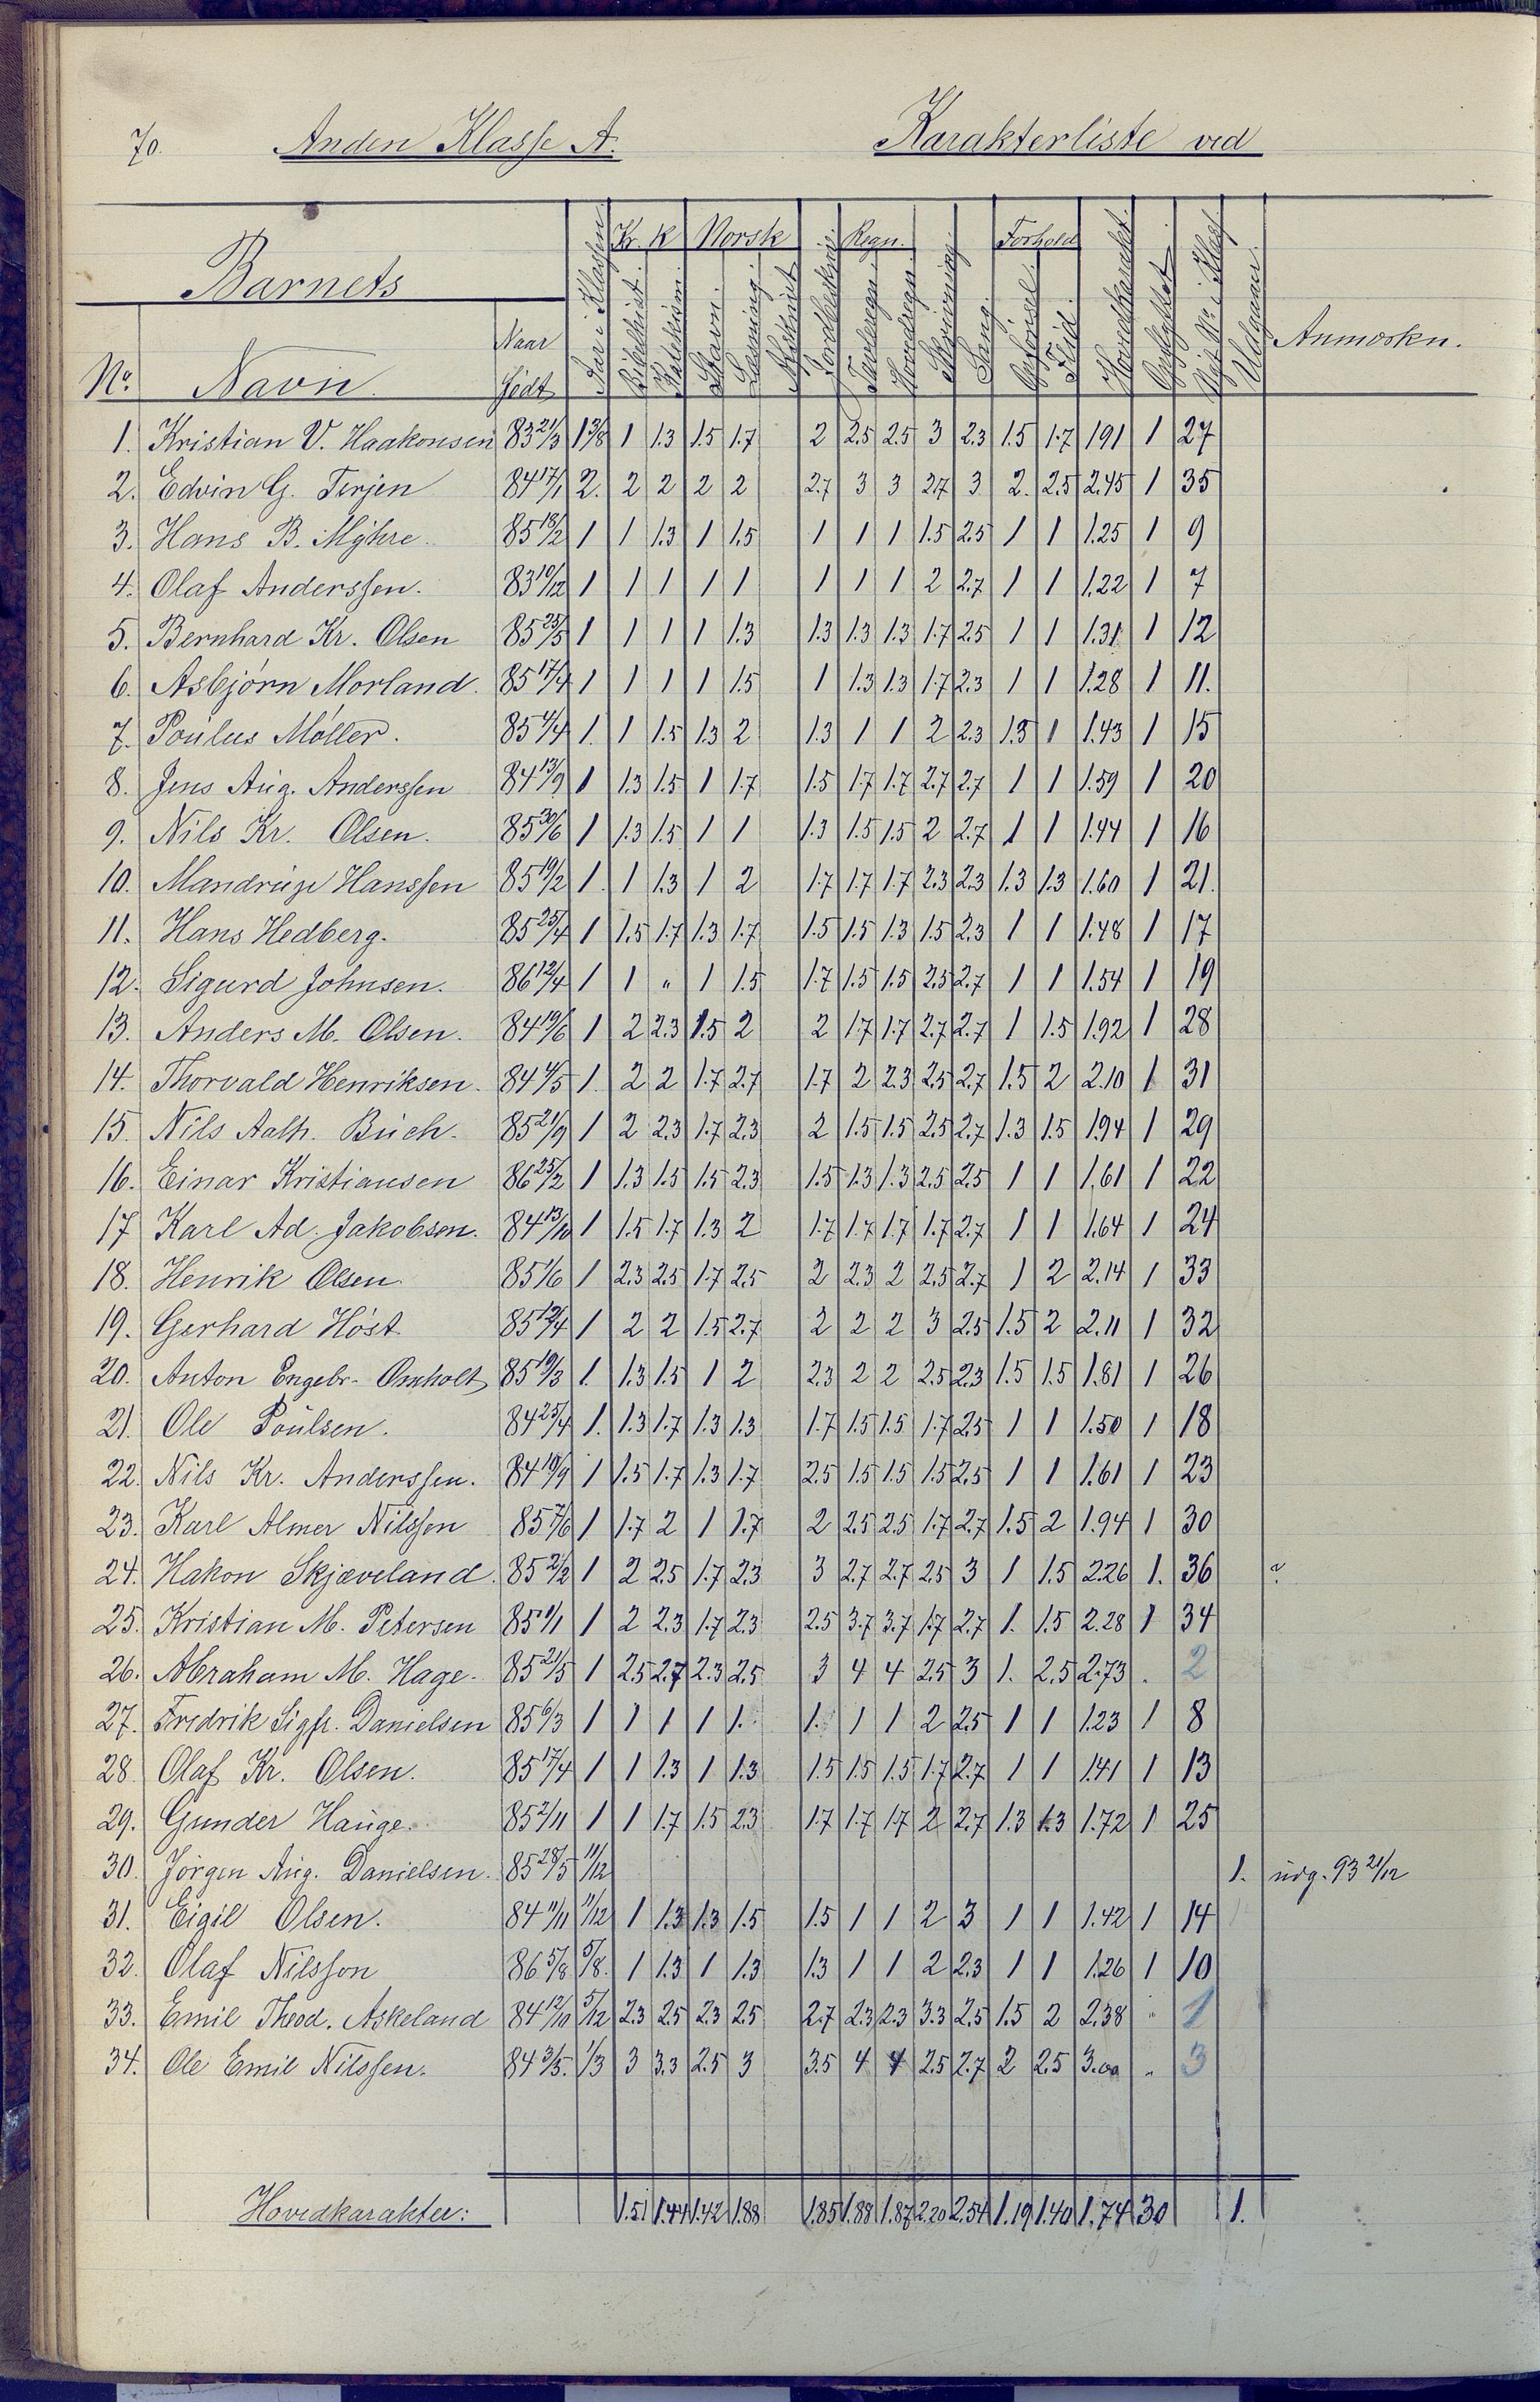 70. Anden Klasse A. Karakterliste ved
Barnets Aar i Klassen Kr. K Norsk Regn. Forhold
No. Navn. Naar født Bibelhist. Katekism. Stavn. Læsning. Afskrivt Jordbeskriv. Tavleregn. Hovedregn. Skrivning. Sang. Opførsel. Flid. Hovedkarakt. Opflyttet. Nyt No. i Klas. Udgaar. Anmærkn.
1. Kristian V. Haakonsen 83 21/3 1 3/8 1 1.3 1.5 1.7 2 2.5 2.5 3 2.3 1.5 1.7 1.91 1 27
2. Edvin G. Terjen 84 17/1 2. 2 2 2 2 2.7 3 3 2.7 3 2. 2.5 2.45 1 35
3. Hans B. Myhre. 85 18/2 1 1 1.3 1 1.5 1 1 1 1.5 2.5 1 1 1.25 1 9
4. Olaf Anderssen. 83 10/12 1 1 1 1 1 1 1 1 2 2.7 1 1 1.22 1 7
5. Bernhard Kr. Olsen 85 25/5 1 1 1 1 1.3 1.3 1.3 1.3 1.7 2.5 1 1 1.31 1 12
6. Asbjørn Morland. 85 17/4 1 1 1 1 1.5 1 1.3 1.3 1.7 2.3 1 1 1.28 1 11.
7. Poulus Møller. 85 4/4 1. 1 1.5 1.3 2 1.3 1 1 2 2.3 1.3 1 1.43 1 15
8. Jens Aug. Anderssen 84 13/9 1 1.3 1.5 1 1.7 1.5 1.7 1.7 2.7 2.7 1 1 1.59 1 20
9. Nils Kr. Olsen. 85 30/6 1 1.3 1.5 1 1 1.3 1.5 1.5 2 2.7 1 1 1.44 1 16
10. Mandrup Hanssen 85 19/2 1. 1 1.3 1 2 1.7 1.7 1.7 2.3 2.3 1.3 1.3 1.60 1 21.
11. Hans Hedberg. 85 25/4 1 1.5 1.7 1.3 1.7 1.5 1.5 1.3 1.5 2.3 1 1 1.48 1 17
12. Sigurd Johnsen. 86 12/4 1 1 " 1 1.5 1.7 1.5 1.5 2.5 2.7 1 1 1.54 1 19
13. Anders M. Olsen. 84 19/6 1 2 2.3 1.5 2 2 1.7 1.7 2.7 2.7 1 1.5 1.92 1 28
14. Thorvald Henriksen. 84 4/5 1. 2 2 1.7 2.7 1.7 2 2.3 2.5 2.7 1.5 2 2.10 1 31
15. Nils Aalh. Buch. 85 21/9 1 2 2.3 1.7 2.3 2 1.5 1.5 2.5 2.7 1.3 1.5 1.94 1 29
16. Einar Kristiansen 86 25/2 1 1.3 1.5 1.5 2.3 1.5 1.3 1.3 2.5 2.5 1 1 1.61 1 22
17 Karl Ad. Jakobsen. 84 13/10 1 1.5 1.7 1.3 2 1.7 1.7 1.7 1.7 2.7 1 1 1.64 1 24
18. Henrik Olsen. 85 1/6 1 2.3 2.5 1.7 2.5 2 2.3 2 2.5 2.7 1 2 2.14 1 33
19. Gerhard Høst. 85 12/4 1 2 2 1.5 2.7 2 2 2 3 2.5 1.5 2 2.11 1 32
20. Anton Engebr. Omholt 85 19/3 1. 1.3 1.5 1 2 2.3 2 2 2.5 2.3 1.5 1.5 1.81 1 26
21. Ole Poulsen. 84 25/4 1. 1.3 1.7 1.3 1.3 1.7 1.5 1.5 1.7 2.5 1 1 1.50 1 18
22. Nils Kr. Anderssen. 84 19/9 1 1.5 1.7 1.3 1.7 2.5 1.5 1.5 1.5 2.5 1 1 1.61 1 23
23. Karl Almer Nilssen 85 7/6 1 1.7 2 1 1.7 2 2.5 2.5 1.7 2.7 1.5 2 1.94 1 30
24. Hakon Skjæveland. 85 2/2 1 2 2.5 1.7 2.3 3 2.7 2.7 2.5 3 1 1.5 2.26 1. 36
25. Kristian M. Petersen 85 1/1 1 2 2.3 1.7 2.3 2.5 3.7 3.7 1.7 2.7 1. 1.5 2.28 1 34
26. Abraham M. Hage. 85 21/5 1 2.5 2.7 2.3 2.5 3 4 4 2.5 3 1. 2.5 2.73 . 2
27. Fredrik Sigfr. Danielsen 85 6/3 1 1 1 1 1. 1. 1 1 2 2.5 1 1 1.23 1 8
28. Olaf Kr. Olsen. 85 17/4 1 1 1.3 1 1.3 1.5 1.5 1.5 1.7 2.7 1 1 1.41 1 13
29. Gunder Hauge. 85 2/11 1 1 1.7 1.5 2.3 1.7 1.7 1.7 2 2.7 1.3 1.3 1.72 1 25
30. Jørgen Aug. Danielsen. 85 28/5 11/12 1. udg. 93 21/12
31. Eigil Olsen. 84 11/11 11/12 1 1.3 1.3 1.5 1.5 1 1 2 3 1 1 1.42 1 14
32. Olaf Nilsson 86 5/8 5/8. 1 1.3 1 1.3 1.3 1 1 2 2.3 1 1 1.26 1 10
33. Emil Theod. Askeland 84 12/10 5/12 2.3 2.5 2.3 2.5 2.7 2.3 2.3 3.3 2.5 1.5 2 2.38 " 1
34. Ole Emil Nilssen. 84 3/5. 1/3 3 3.3 2.5 3 3.5 4 4 2.5 2.7 2 2.5 3.00 " 3
Hovedkarakter: 1.51 1.44 1.42 1.88 1.85 1.88 1.87 2.20 2.54 1.19 1.40 1.74 30 1.